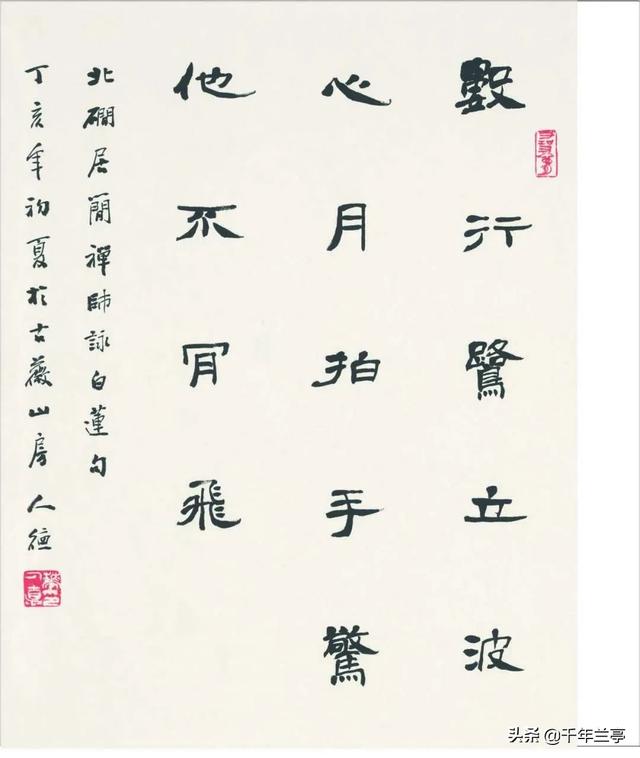 數行鷺立波
心月拍手驚
他不肎飛
北磵居簡禪師詠白蓮句
丁亥年初夏於古薇山房 人德
头条 @千年兰亭